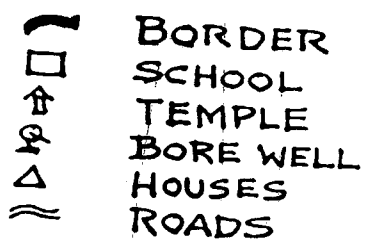 BORDER
SCHOOL
TEMPLE
BORE WELL
HOUSES
ROADS